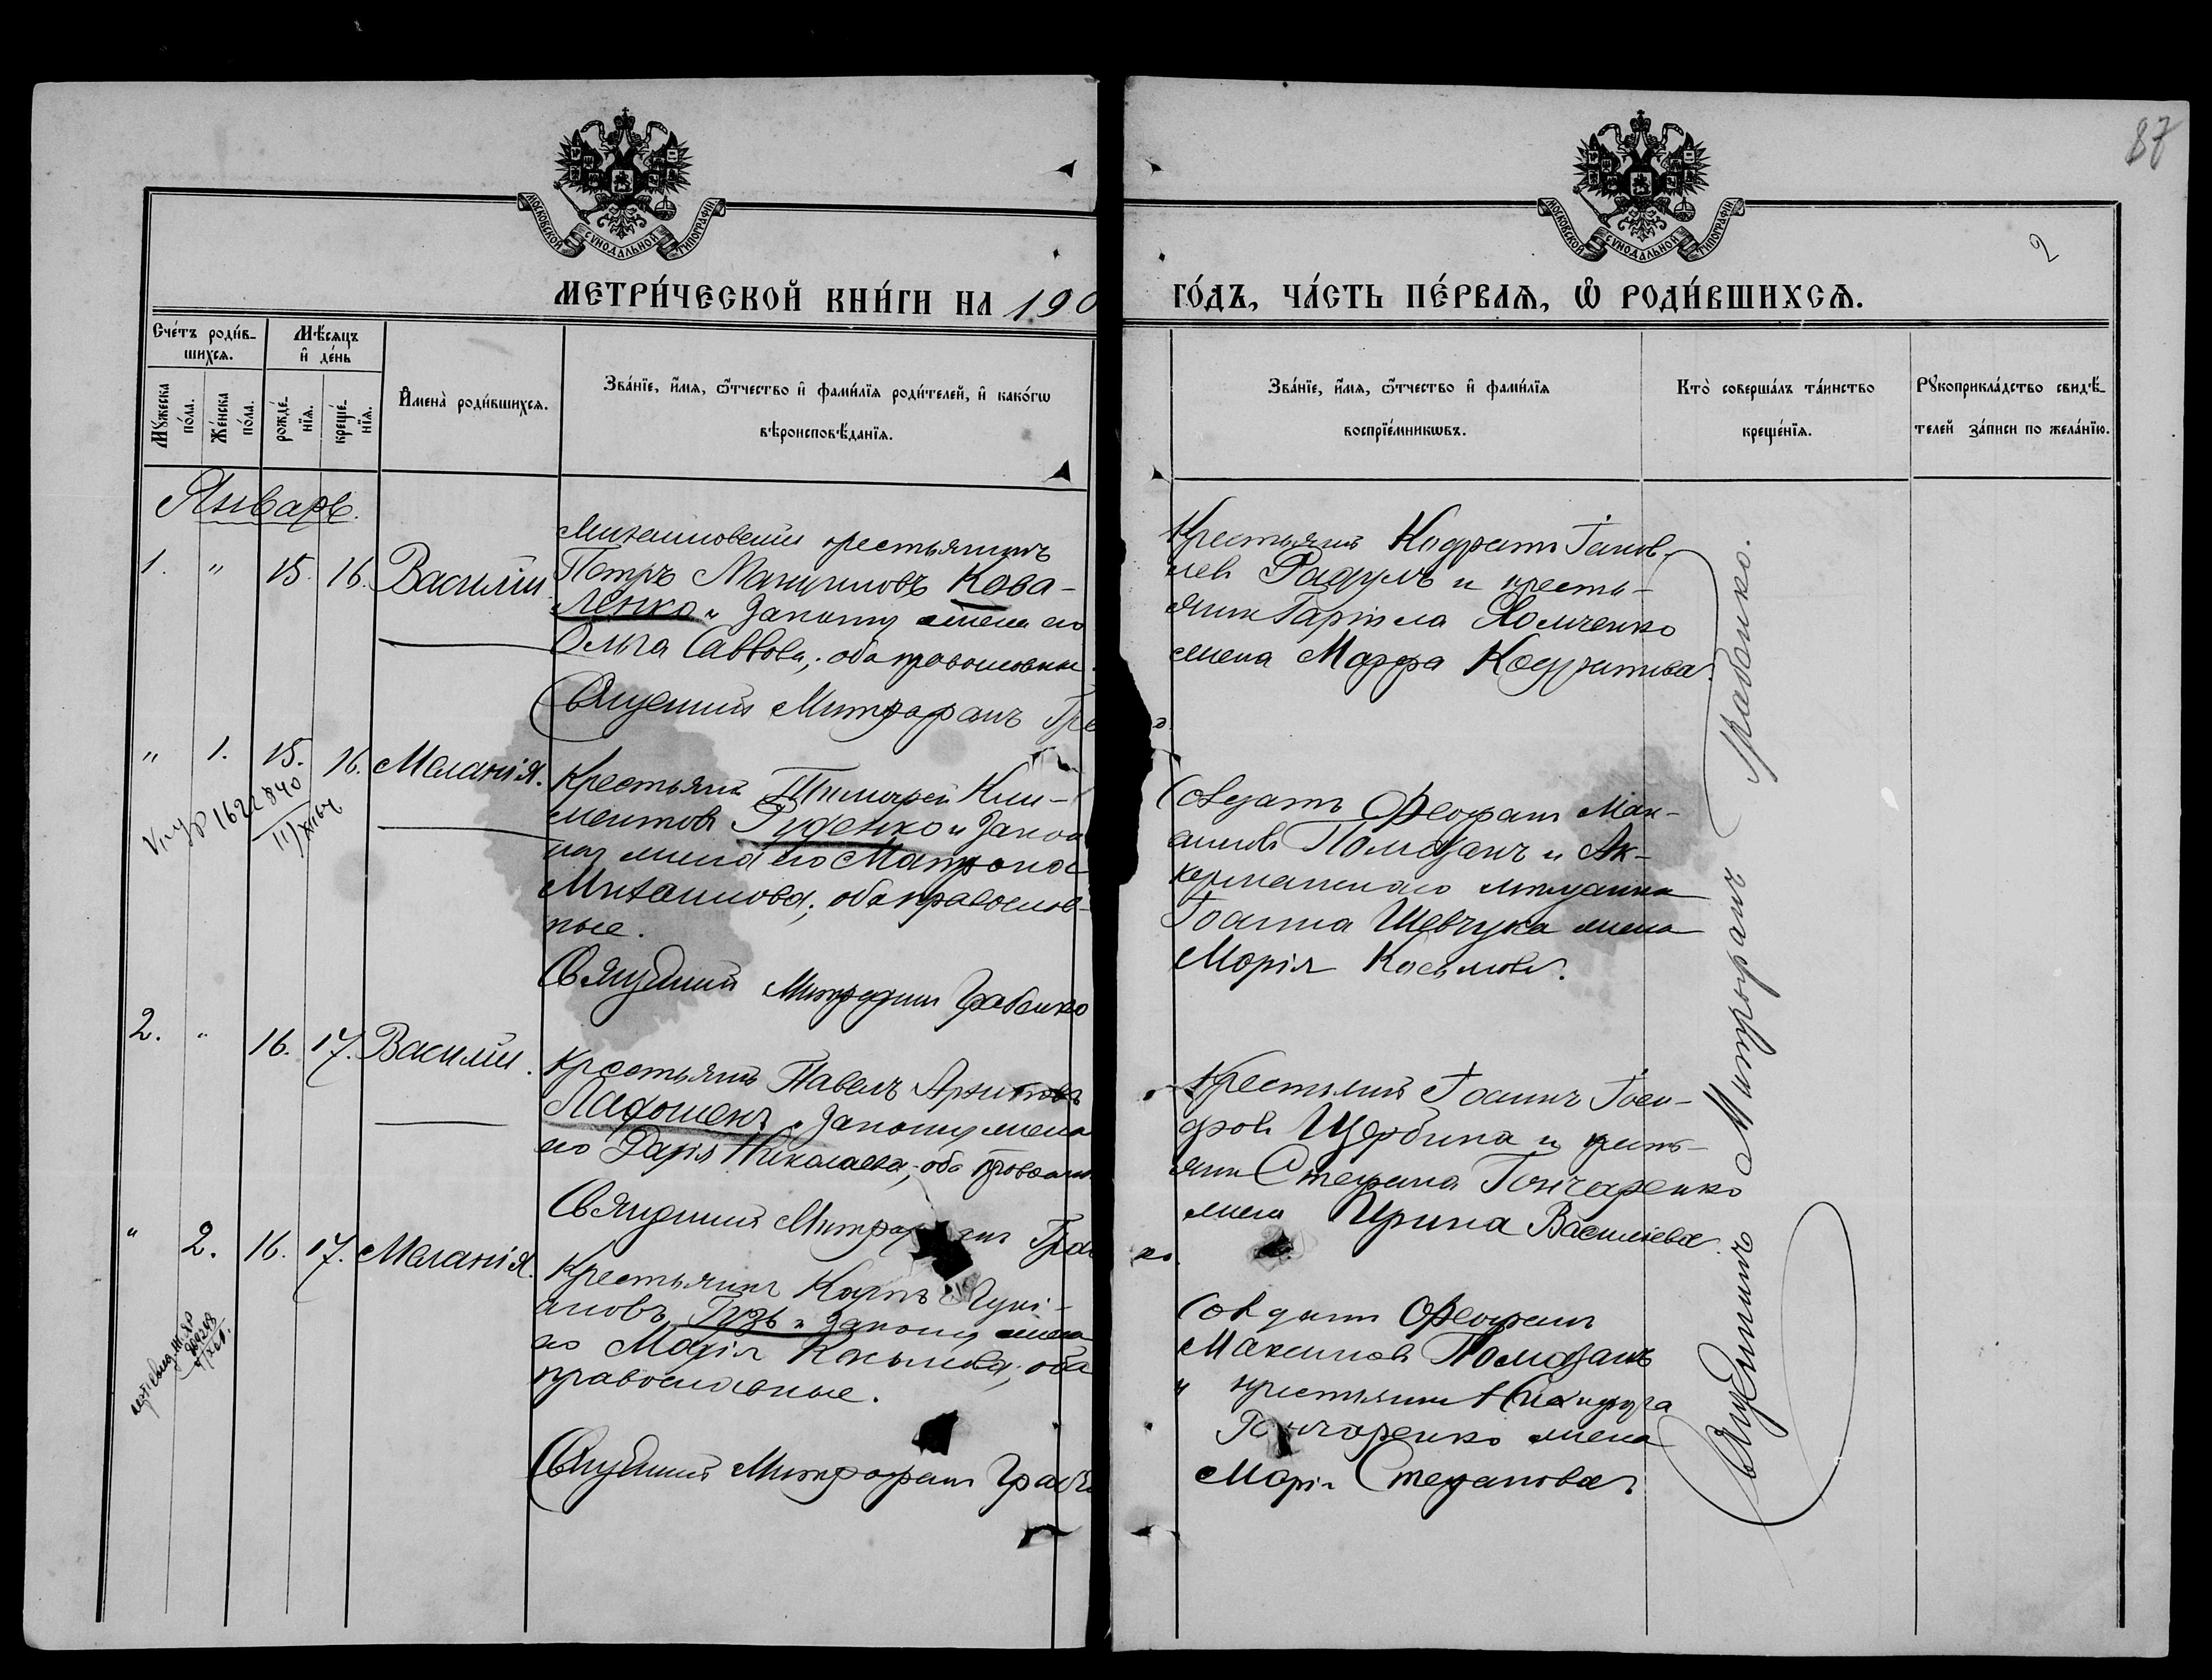 87
2
МОСКОВСКОЙ СѴНОДАЛЬНОЙ ТИПОГРАФІИ
МОСКОВСКОЙ СѴНОДАЛЬНОЙ ТИПОГРАФІИ
МЕТРИ́ЧЕСКОЙ КНИ́ГИ НА 190
ГО́ДЪ, ЧА́СТЬ ПЕ́РВАѦ, Ѿ РОДИ́ВШИХСѦ.
Сче́тъ роди́в-
шихсѧ.
Мꙋ́жеска по́ла.
Же́нска по́ла.
Мѣ́сѧцъ
и҆ де́нь
рожде́-
нїѧ.
креще́-
нїѧ.
И҆мена̀ роди́вшихсѧ.
Зва́нїе, и҆́мѧ, ѻ҆́тчество и҆ фами́лїѧ роди́телей, и҆ како́гѡ
вѣроисповѣ́данїѧ.
Зва́нїе, и҆́мѧ, ѻ҆́тчество и҆ фами́лїѧ
воспрїе́мникѡвъ.
Кто̀ соверша́лъ та́инство
креще́нїѧ.
Рꙋкоприкла́дство свидѣ́-
телей за́писи по жела́нїю.
Январь.
1. " 15. 16. Василій
крестьянинъ
Петръ Кова-
ленко и законная жена его
Ольга Саввова, оба православные.
Священникъ Митрофанъ Гра
Крестьянинъ
и кресть-
янина Хомченко
жена Марфа
" 1. 15. 16. Меланія.
Крестьянинъ Тимофей Кли-
ментовъ Руденко и закон
ная жена его Матрона
Михаилова, оба православ-
ные.
Священникъ Митрофанъ Грабенко
Солдатъ Феофанъ Мак-
симовъ Помазанъ и Ак-
керманскаго мѣщанина
Іоанна Шевчука жена
Марія Косьмова.
2. " 16. 17. Василій.
Крестьянинъ Павелъ Архиповъ
и законная жена
его Дарія Николаева, оба православн
Священникъ Митрофанъ Гра
Крестьянинъ Іоаннъ Іоси-
фовъ Щербина и кресть-
янина Стефана Гончаренко
жена Ирина Васильева.
" 2. 16. 17. Меланія.
Крестьянинъ Карпъ Лукі-
ановъ Гузь и законная жена
его Марія Косьмова, оба
православные.
Священникъ Митрофанъ Грабе
Солдатъ Феофанъ
Максимовъ Помазанъ
и крестьянина Никифора
Гончаренко жена
Марія Стефанова.
Священникъ Митрофанъ Грабенко.